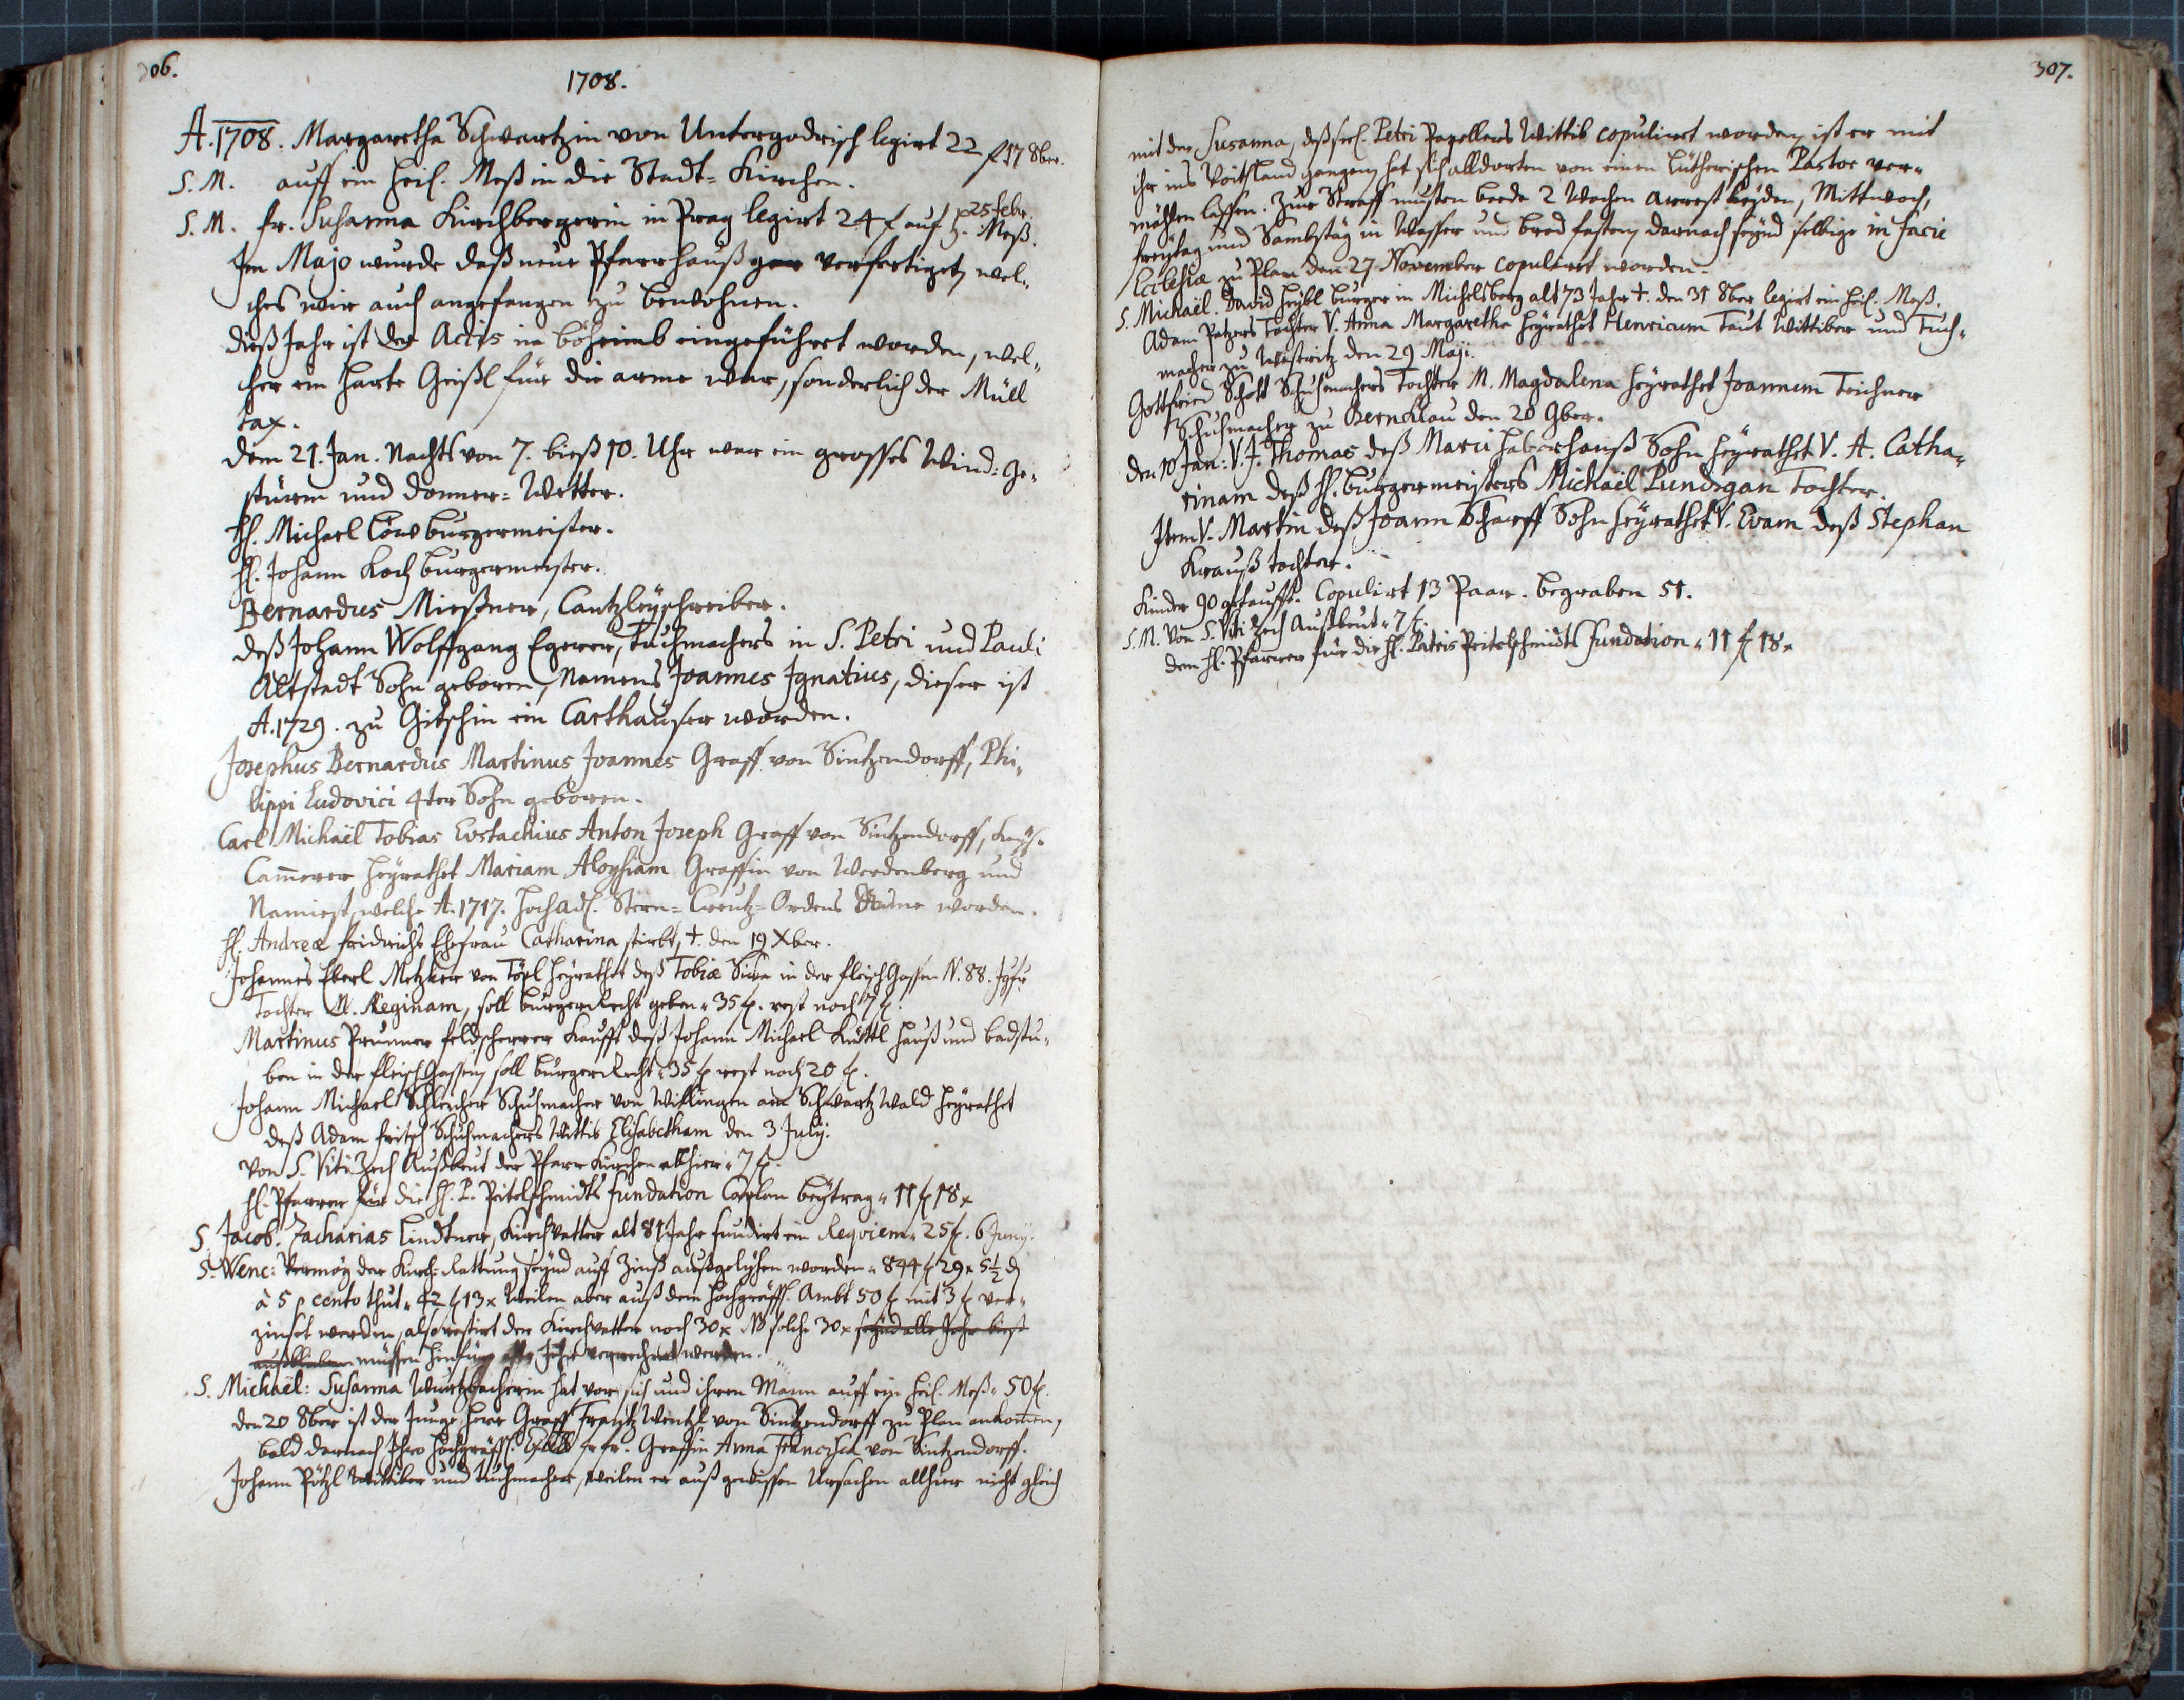 306.
1708.
A. 1708. Margaretha Schwartzin von Untergodrisch legirt 22 f 17 8ber.
S. M. auff ein heil. Meß in die Stadt= Kirchen.
S. M. fr. Susanna Kirchbergerin in Prag legirt 24 f auf h. Meß. 25 Febr.
Im Majo wurde daß neue Pfarrhauß gar verfertiget, wel„
ches wir auch angefangen zu bewohnen.
Dieß Jahr ist der Accis in Böheimb eingeführet worden, wel„
cher ein harte Geißl für die arme war, sonderlich der Müll
tax.
Dem 21. Jan. Nachts von 7. bieß 10. Uhr war ein grosses Wind= Ge„
stürm und Donner= Wetter.
H. Michael Löw burgermeister.
H. Johann Koch burgermeister.
Bernardus Mießner, Cantzleÿschreiber.
Deß Johann Wolffgang Egerer, Tuchmachers in S. Petri und Pauli
Altstadt Sohn geboren, Namens Joannes Ignatius, dieser ist
A. 1729. zu Gitschin ein Carthauser worden.
Josephus Bernardus Martinus Joannes Graff von Sintzendorff, Phi„
lippi Ludovici 4ter Sohn geboren.
Carl Michaël Tobias Eustachius Anton Joseph Graff von Sintzendorff, Kaÿs.
Cammerer heÿrathet Mariam Aloysiam Graffin von Werdenberg und
Namiest, welche A. 1717. hochadl. Stern= Creutz= Ordens Dame worden.
H. Andreæ Fridrichs Ehefrau Catharina stirbt, †. den 19 Xber.
Johannes Eberl Metzker von Töpl heÿrathet deß Tobiæ in der fleisch Gassen N. 88. Jgfr
Tochter M. Reginam, soll burgerRecht geben „ 35 f. rest noch 7 f.
Martinus Prunner feldscherrer kaufft deß Johann Michael Küttl hauß und badstu„
ben in der fleischGassen, soll burgerRecht „ 35 f rest noch 20 f.
Johann Michael Schleicher Schuhmacher von Willingen am Schwartz Wald heÿrathet
deß Adam Fritsch Schuhmachers Wittib Elisabetham den 3 Julÿ.
Von S. Viti Zech Außbeut der Pfarr Kirchen allhier „ 7 f.
H. Pfarrer für die H. P. Peitelschmidts Fundation Caplan beÿtrag „ 11 f 18 x
S. Jacob. Zacharias Lindtner, Kirchvatter alt 81 Jahr fundirt ein Requiem „ 25 f. 6 Junÿ.
S. Wenc: Vermög der Kirch= Rattung seÿnd auff Zinß außgelÿhen worden „ 844 f 29 x 5½ d
à 5 p cento thut „ 42 f 13 x Weilen aber auß dem hochgräffl. Ambt 50 f mit 3 f ver„
zinset werden, also restirt der Kirchvatter noch 30 x NB solche 30 x seÿnd alle Jahr bieß
müssen hinfüro Jahr verrechnet werden.
S. Michaël: Susanna Wurtzbacherin hat vor sich und ihren Mann auff ein heil. Meß „ 50 f.
den 20 8ber ist der Junge Herr Graff Frantz Wentzl von Sintzendorff zu Plan ankommen,
bald darnach Ihro hochgräffl. fr. fr. Graffin Anna Francisca von Sintzendorff.
Johann Pötzl Wittiber und Tuchmacher, weilen er auß gewissen Ursachen allhier nicht gleich
307.
mit der Susanna, deß seel. Petri Pagellers Wittib copulirt worden, ist er mit
ihr ins Voitland gangen, hat sich alldorten von einen Lutherischen Pastor ver„
mählen lassen. Zur Straff musten beede 2 Wochen Arrest leÿden, Mittwoch,
Freÿtag und Sambstäg in Wasser und Brod fasten, darnach seÿnd selbige in facie
Ecclesiæ zu Plan den 27 November copulirt worden.
S. Michaël. David Heÿbl burger in Michelsberg alt 73 Jahr †. den 31 8ber legirt ein heil. Meß.
Adam Patzers Tochter V. Anna Margaretha heÿrathet Henricum Taut Wittiber und Tuch„
macher zu den 29 Maji.
Gottfried Schott Schuhmachers Tochter M. Magdalena heÿrathet Joannem Teichner
Schuhmacher zu Bernklau den 20 9ber.
den 10 Jan: V. J. Thomas deß Marci Haberhanß Sohn heÿrathet V. A. Catha„
rinam deß H. burgermeisters Michaël Lundigan Tochter.
Item V. Martin deß Joann Scharff Sohn heÿrathet V. Evam deß Stephan
Krauß Tochter.
Kinder 90 getaufft. Copulirt 13 Paar. begraben 51.
S. M. Von S. Viti Zech Außbeut „ 7 f.
dem H. Pfarrer für die H. Patris Peitelschmidts Fundation „ 11 f 18 x